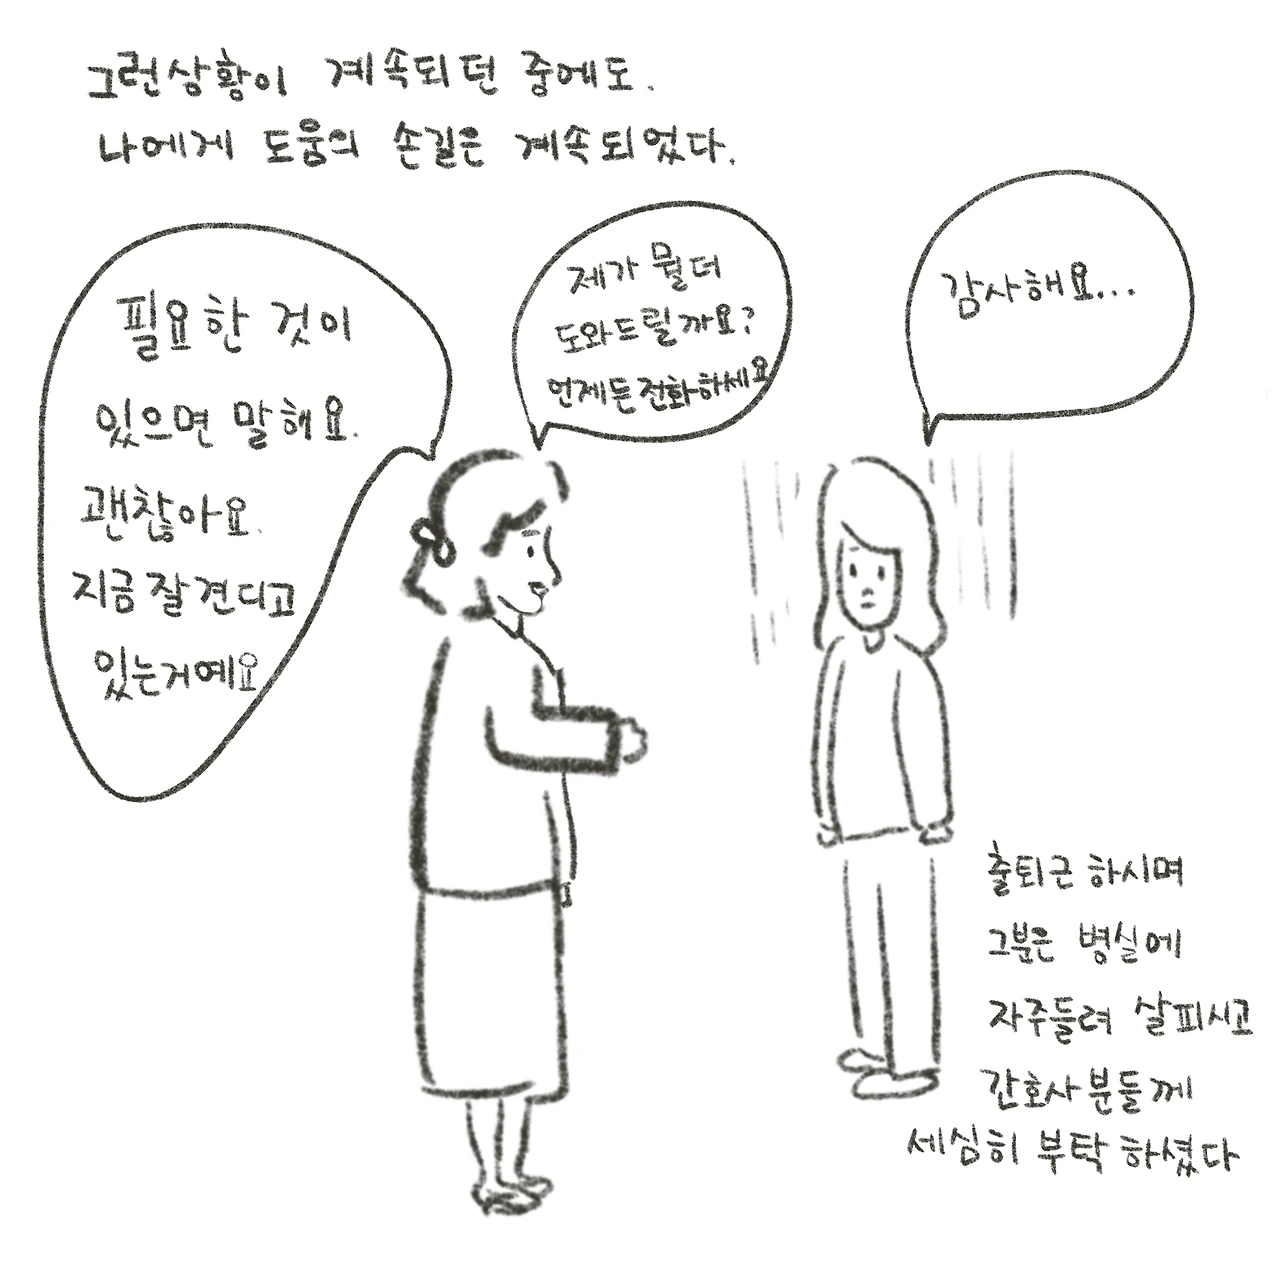 그런상황이 계속되던 중에도.
나에게 도움의 손길은 계속되었다.
필요한 것이
있으면 말해요.
괜찮아요.
지금 잘 견디고
있는거예요
제가 뭘더
도와드릴까요?
언제든전화하세요
감사해요...
출퇴근 하시며
그분은 병실에
자주들려 살피시고
간호사분들께
세심히 부탁 하셨다